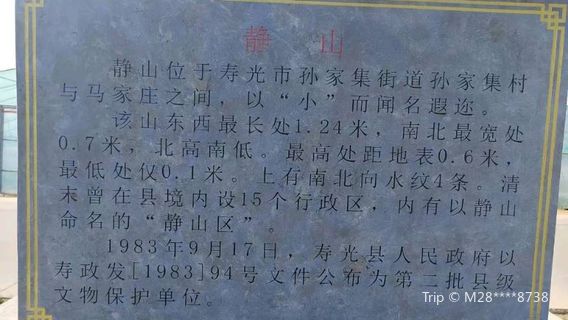 静 山
静山位于寿光市孙家集街道孙家集村
与马家庄之间，以“小”而闻名遐迩。
该山东西最长处1.24米，南北最宽处
0.7米，北高南低。最高处距地表0.6米，
最低处仅0.1米。上有南北向水纹4条。清
末曾在县境内设15个行政区，内有以静山
命名的“静山区”。
1983年9月17日，寿光县人民政府以
寿政发[1983]94号文件公布为第二批县级
文物保护单位。
Trip © M28****8738